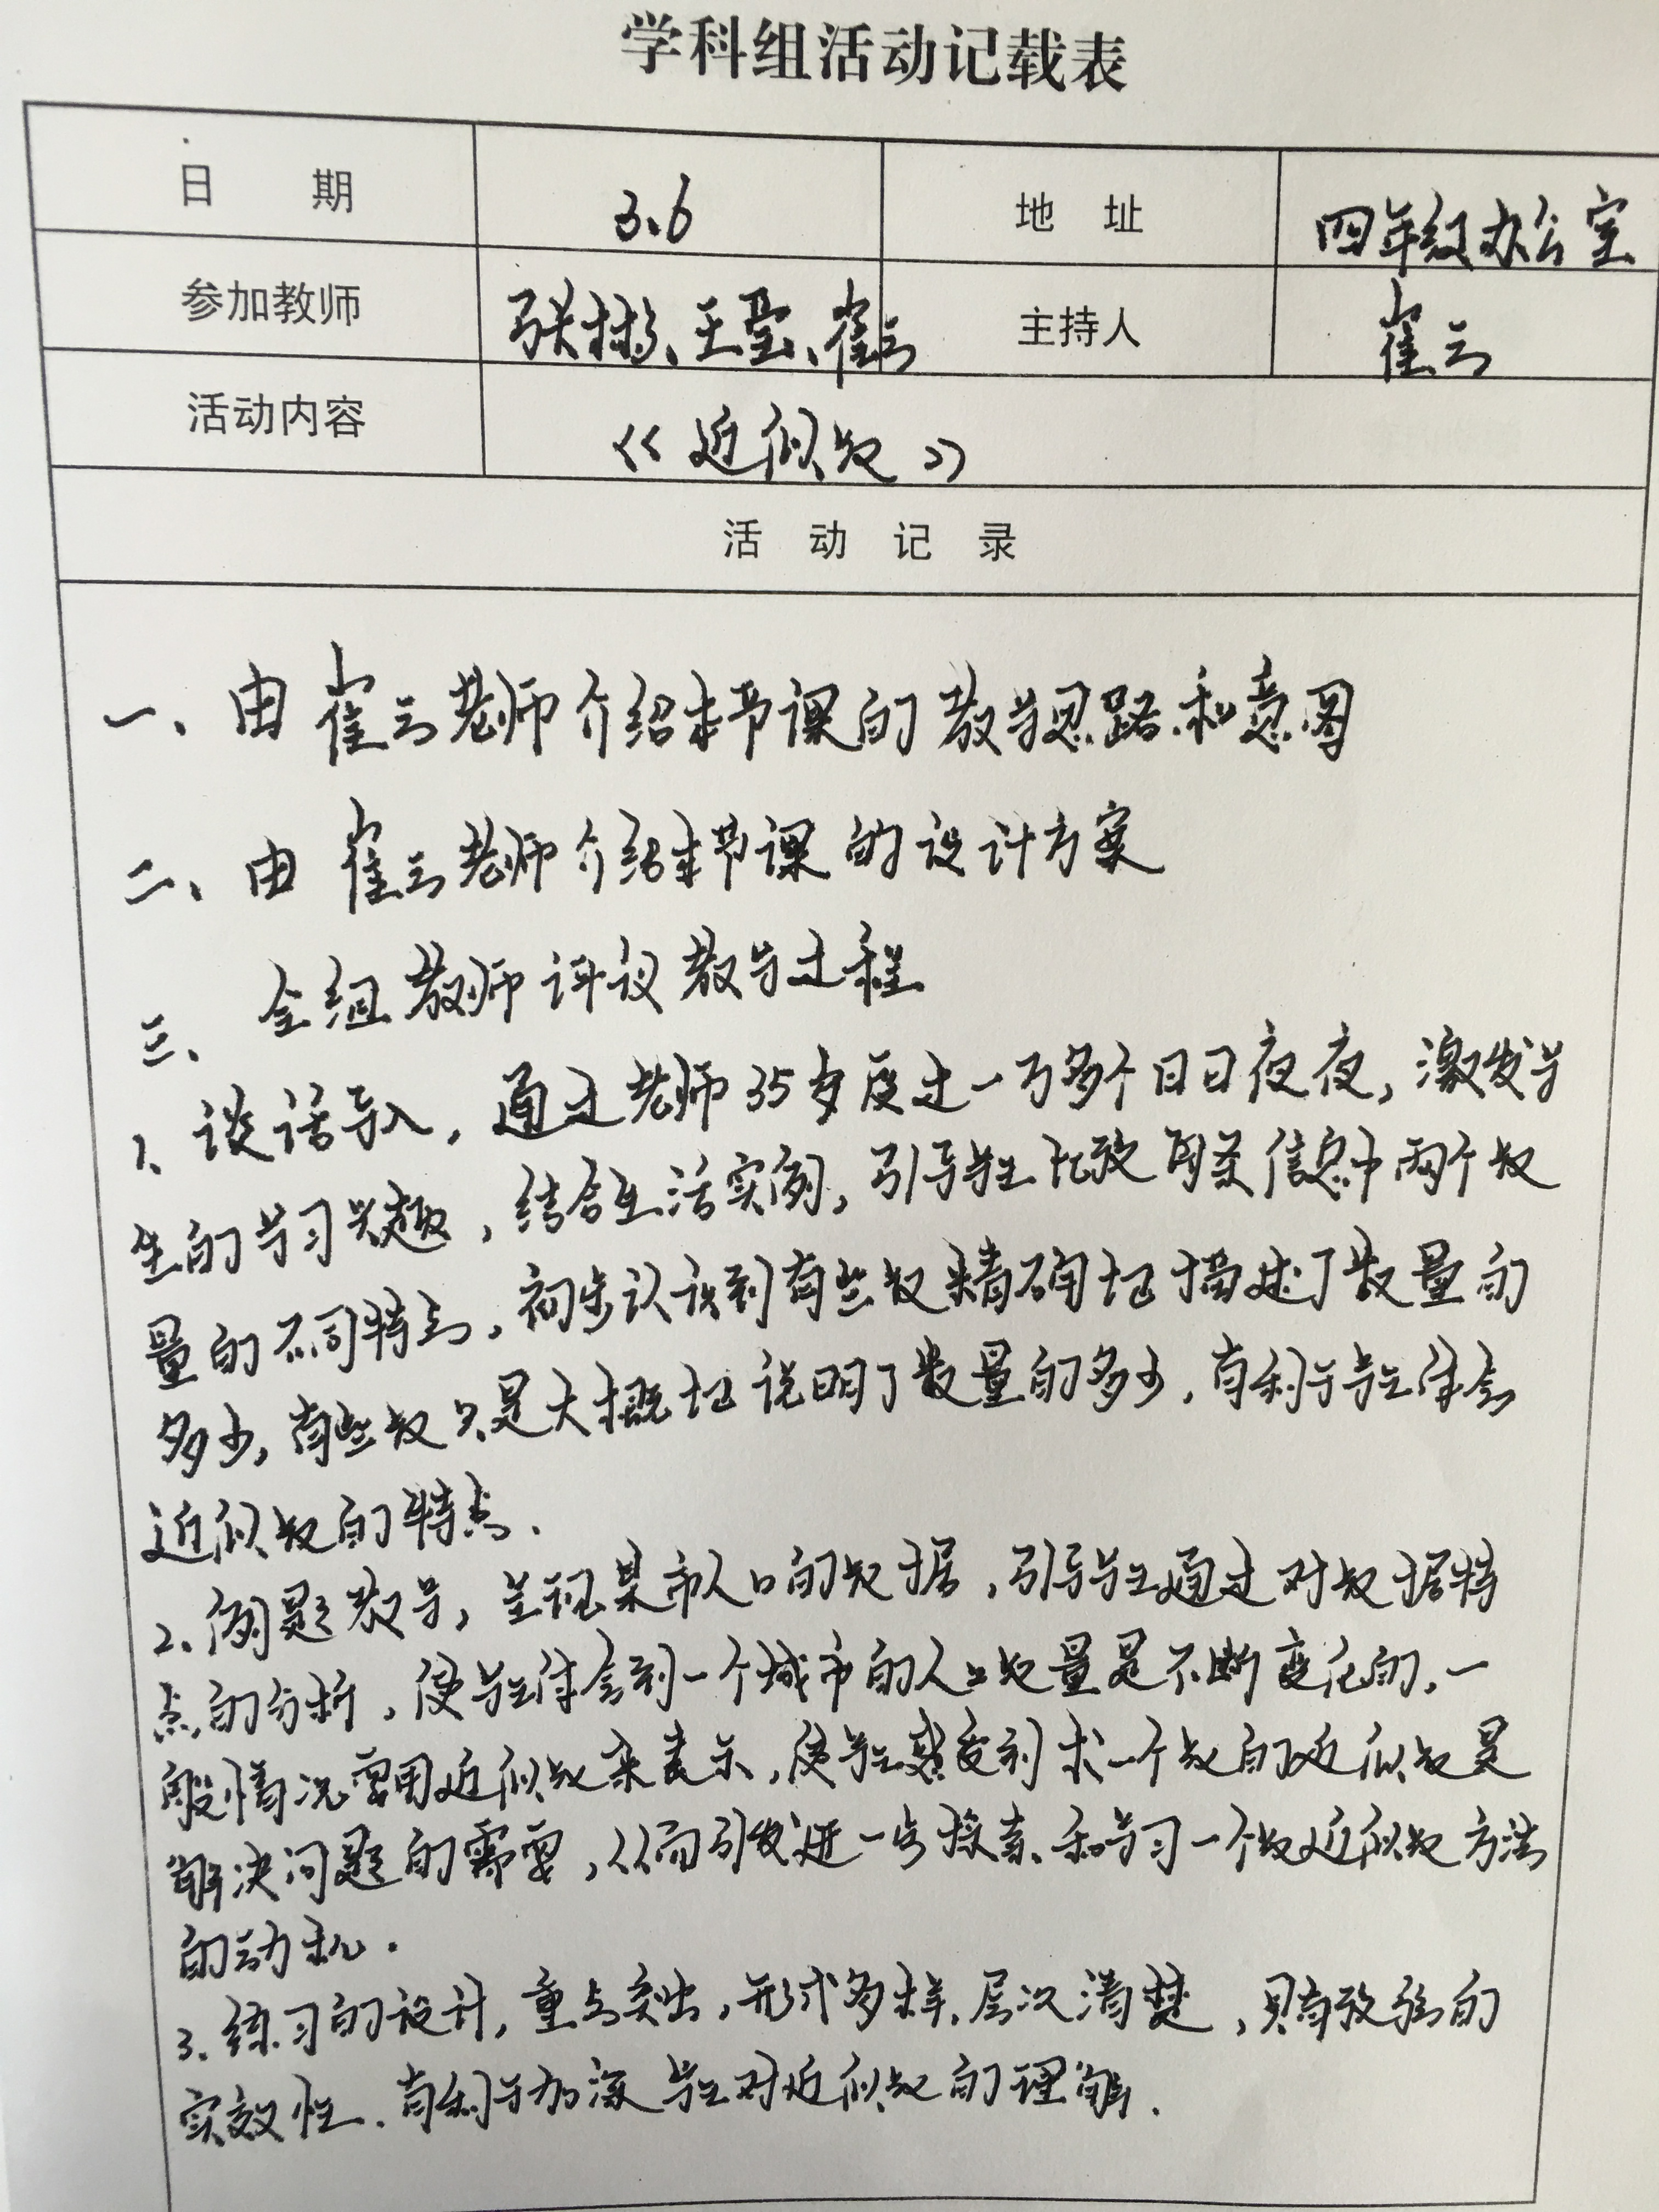 学科组活动记载表
日 期 3.6 地 址 四年级办公室
参加教师 张彬、王莹、崔云 主持人 崔云
活动内容 《近似数》
活 动 记 录
一、由崔云老师介绍本节课的教学思路和意图
二、由崔云老师介绍本节课的设计方案
三、全组教师评议教学过程
1、谈话导入，通过老师35岁度过一万多个日日夜夜，激发学
生的学习兴趣，结合生活实例，引导学生比较两条信息中两个数
量的不同特点，初步认识到有些数精确地描述了数量的
多少，有些数只是大概地说明了数量的多少，有利于学生体会
近似数的特点.
2、例题教学，呈现某市人口的数据，引导学生通过对数据特
点的分析，使学生体会到一个城市的人口数量是不断变化的，一
般情况要用近似数来表示，使学生感受到求一个数的近似数是
解决问题的需要，从而引发进一步探索和学习一个数近似数方法
的动机.
3、练习的设计，重点突出，形式多样，层次清楚，具有较强的
实效性，有利于加深学生对近似数的理解.